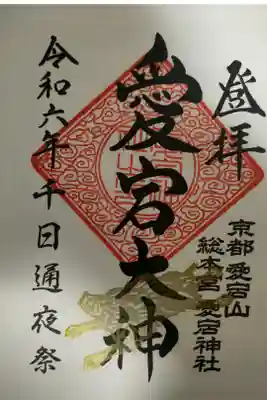 登拝
京都愛宕山
総本宮愛宕神社
愛宕大神
令和六年千日通夜祭